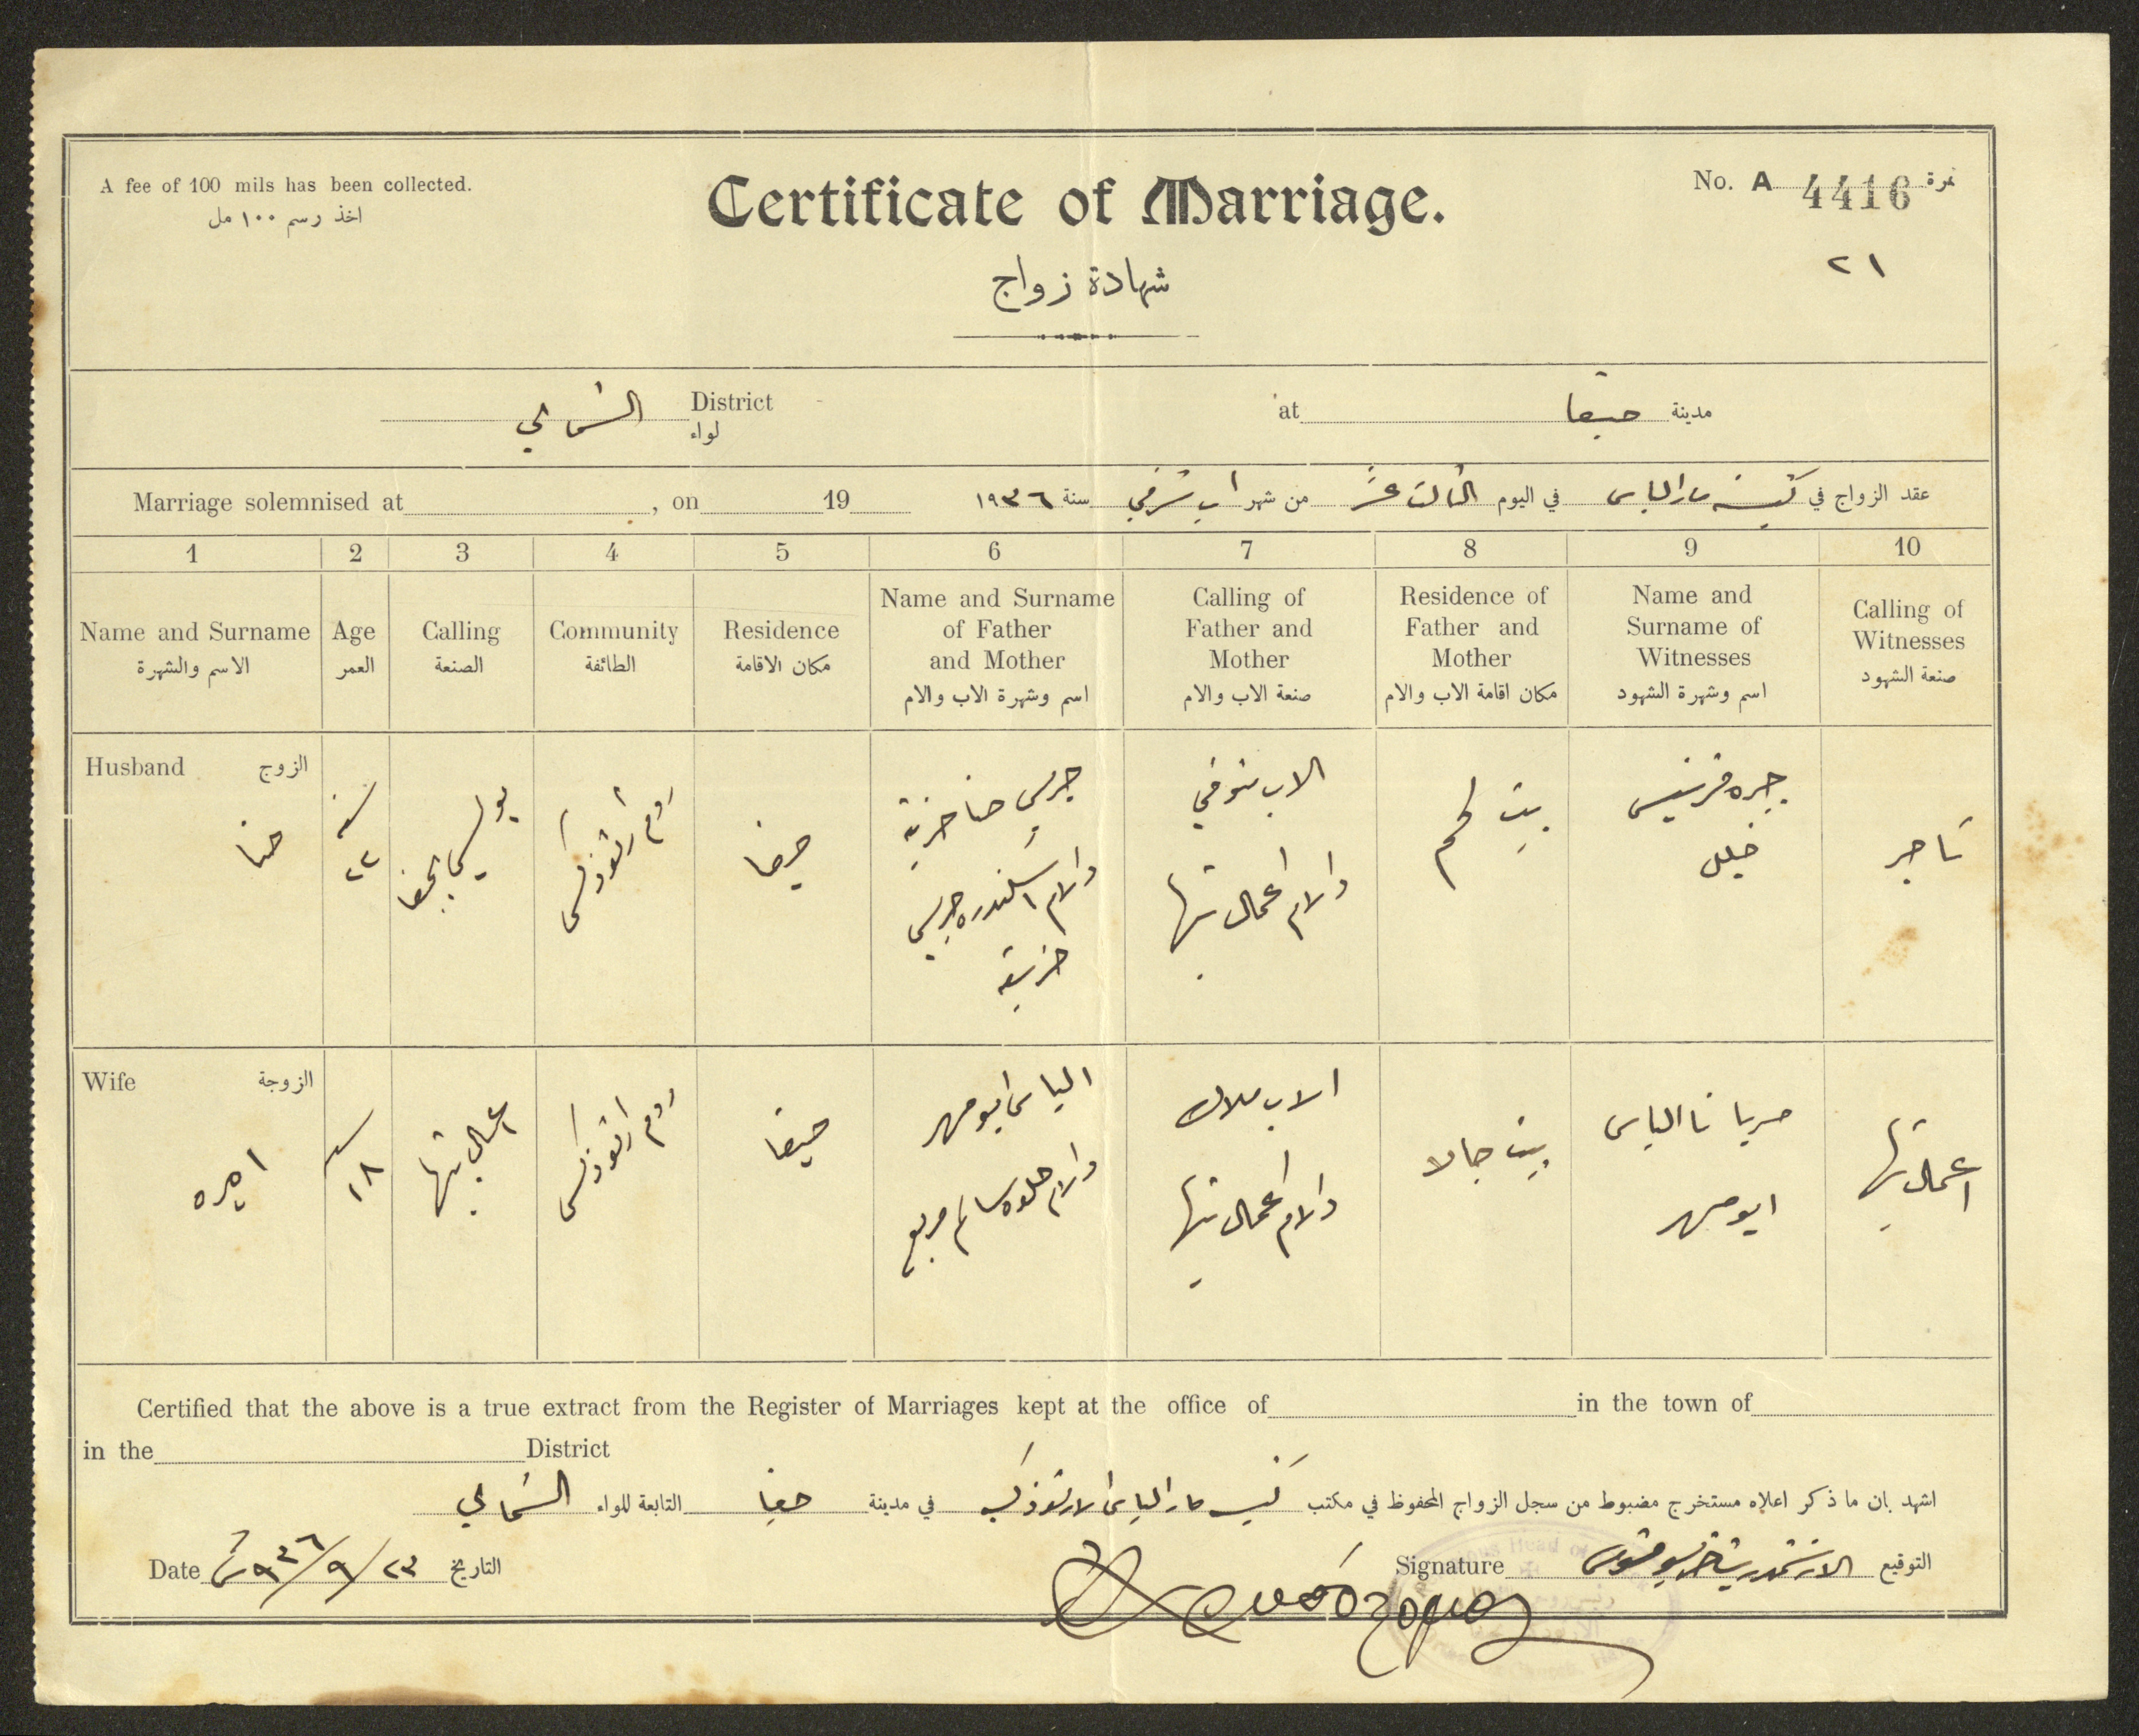 A fee of 100 mils has been collected.
اخذ رسم ١٠٠ مل
Certificate of Marriage.
شهادة زواج
No. A 4416 نمرة
٢١
District الشمالي
لواء
at حيفا مدينة
Marriage solemnised at , on 19
عقد الزواج في كنيسة مار الياس في اليوم الثالث عشر من شهر اب شرقي سنة ١٩٣٦
1 2 3 4 5 6 7 8 9 10
Name and Surname
الاسم والشهرة
Age
العمر
Calling
الصنعة
Community
الطائفة
Residence
مكان الاقامة
Name and Surname
of Father
and Mother
اسم وشهرة الاب والام
Calling of
Father and
Mother
صنعة الاب والام
Residence of
Father and
Mother
مكان اقامة الاب والام
Name and
Surname of
Witnesses
اسم وشهرة الشهود
Calling of
Witnesses
صنعة الشهود
Husband الزوج
حنا
سنة
٢٢
بوليس بحيفا
روم ارثوذكس
حيفا
جريس حنا خزينة
والام اسكندره جريس
خزينة
الاب متوفي
والام اعمال بيتها
بيت لحم
جبره فرنسيس
خليل
تاجر
Wife الزوجة
اميره
سنة
١٨
اعمال بيتها
روم ارثوذكس
حيفا
الياس ابو مهر
والام حلوه سالم مربع
الاب ملاك
والام اعمال بيتها
بيت جالا
مريانا الياس
ابو مهر
اعمال بيتها
Certified that the above is a true extract from the Register of Marriages kept at the office of in the town of
in the District
اشهد بان ما ذكر اعلاه مستخرج مضبوط من سجل الزواج المحفوظ في مكتب كنيسة مار الياس الارثوذكسية في مدينة حيفا التابعة للواء الشمالي
Date ٢٣/٩/٩٣٦ ش التاريخ
Signature الارشمندريت التوقيع